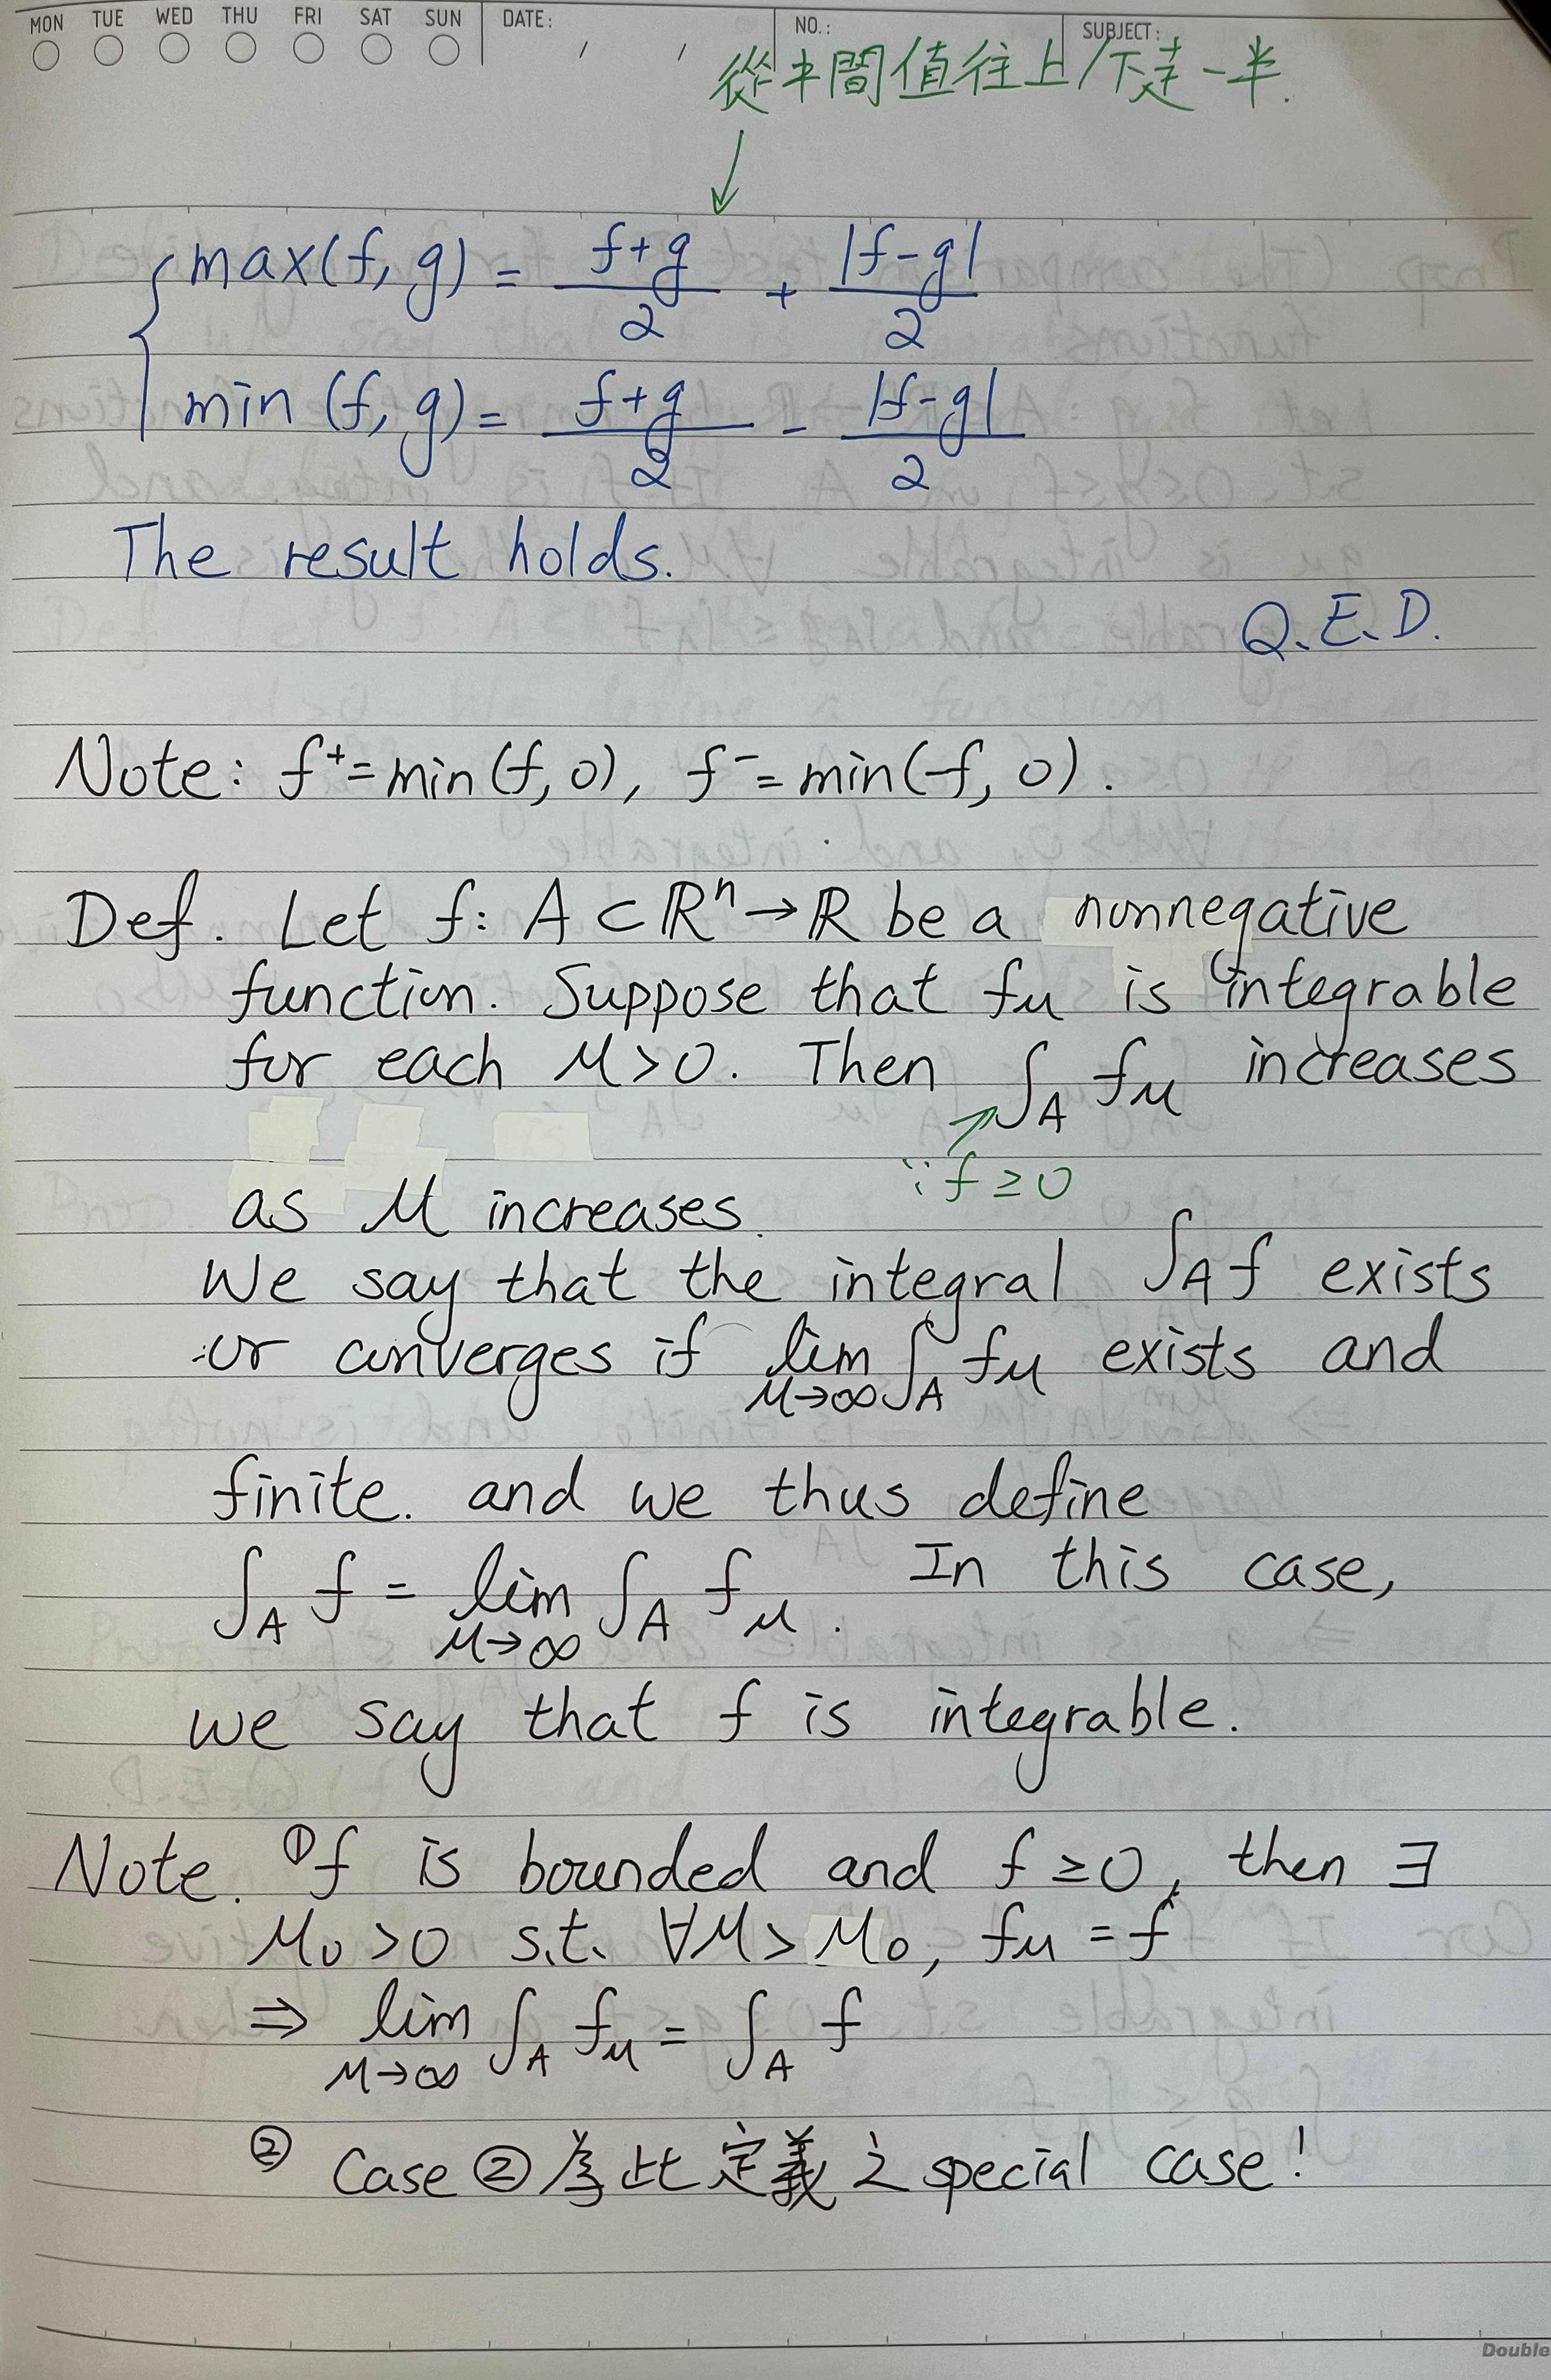 MON TUE WED THU FRI SAT SUN DATE: / / NO.: SUBJECT:
從中間值往上/下走一半.
max(f, g) = (f+g)/2 + |f-g|/2
min (f, g) = (f+g)/2 - |f-g|/2
The result holds.
Q.E.D.
Note: f⁺=min(f, 0), f⁻=min(-f, 0).
Def. Let f: A⊂ℝⁿ→ℝ be a nonnegative
function. Suppose that f_M is integrable
for each M>0. Then ∫_A f_M increases
∵ f ≥ 0
as M increases.
We say that the integral ∫_A f exists
or converges if lim_{M→∞} ∫_A f_M exists and
finite. and we thus define
∫_A f = lim_{M→∞} ∫_A f_M. In this case,
we say that f is integrable.
Note. ① f is bounded and f ≥0, then ∃
M₀ >0 s.t. ∀M> M₀, f_M = f
⇒ lim_{M→∞} ∫_A f_M = ∫_A f
② Case ② 為此定義之 special case!
Double